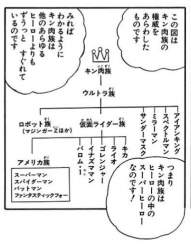 この図は
キン肉族の
権威を
あらわした
ものです
みれば
わかるように
キン肉族は
他のあらゆる
ヒーローよりも
ずうっと すぐれて
いるのです
キン肉族
ウルトラ族
ロボット族
(マジンガーZほか)
仮面ライダー族
アイアンキング
スペクトルマン
ミラーマン
サンダーマスク
キカイダー
ライダー
ゴレンジャー
イナズマン
バロム・1
アメリカ族
スーパーマン
スパイダーマン
バットマン
ファンタスティックフォー
つまり
キン肉族は
ヒーローの中の
スーパーヒーロー
なのです!